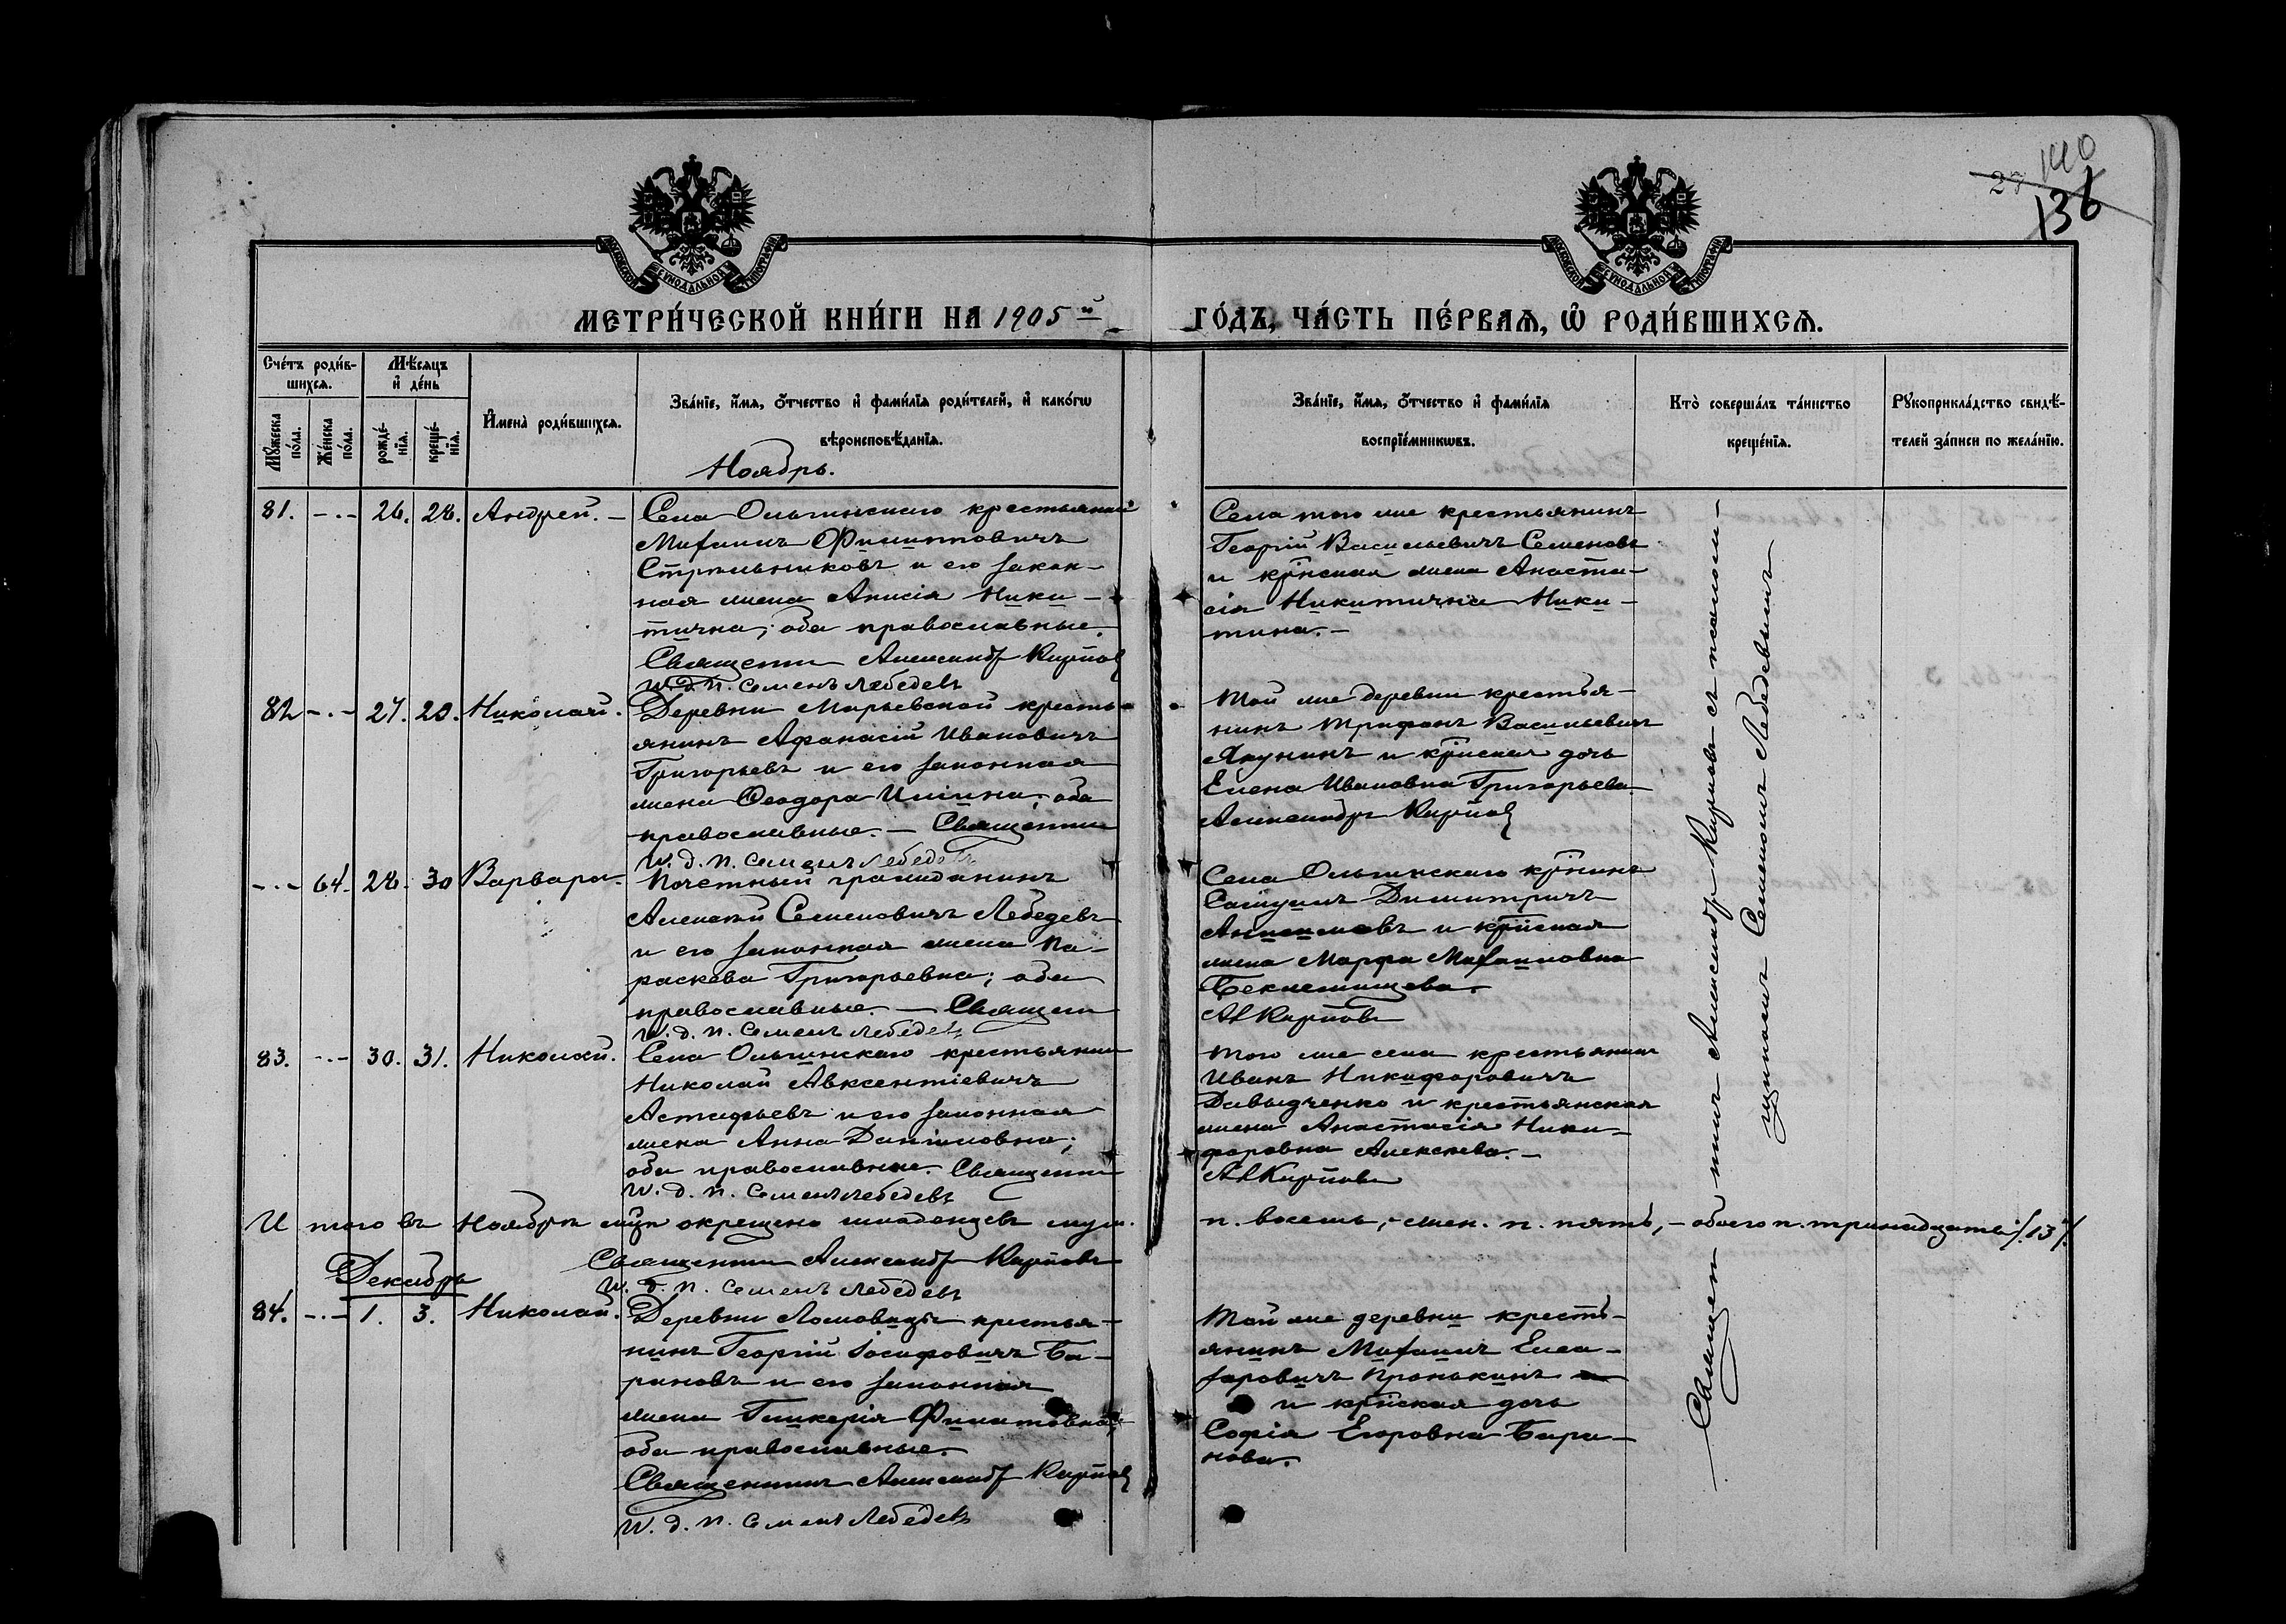 140
27
136
МЕТРИ́ЧЕСКОЙ КНИ́ГИ НА 1905й
ГО́ДЪ, ЧА́СТЬ ПЕ́РВАѦ, Ѽ РОДИ́ВШИХСѦ.
Сче́тъ роди́в-
шихсѧ.
Мѣ́сѧцъ
и҆ де́нь
Мꙋ́жеска
по́ла.
Же́нска
по́ла.
рожде́-
нїѧ.
креще́-
нїѧ.
И҆мена̀ роди́вшихсѧ.
Зва́нїе, и҆́мѧ, ѻ҆́тчество и҆ фами́лїѧ роди́телей, и҆ како́гѡ
вѣроисповѣ́данїѧ.
Зва́нїе, и҆́мѧ, ѻ҆́тчество и҆ фами́лїѧ
воспрїе́мникѡвъ.
Кто̀ соверша́лъ та́инство
креще́нїѧ.
Рꙋкоприкла́дство свидѣ́-
телей за́писи по жела́нїю.
Ноябрь.
81. -.- 26. 28. Андрей. –
Села Ольгинскаго крестьянинъ
Михаилъ Филиппович
Стрѣльниковъ и его закон-
ная жена Анисія Ники-
тична; оба православные.
Священникъ Александр Карпов
И. д. п. Семенъ Лебедевъ
Села того же крестьянинъ
Георгій Васильевичъ Семеновъ
и кр̃нская жена Анаста-
сія Никитична Ники-
тина. –
82 -.- 27. 28. Николай.
Деревни Марьевской кресть-
янинъ Афанасій Ивановичъ
Григорьевъ и его законная
жена Ѳеодора Ильина; оба
православные. – Священникъ
И. д. п. Семенъ Лебедевъ
Той же деревни крестья-
нинъ Трифонъ Васильевичъ
Якунинъ и кр̃нская дочь
Елена Ивановна Григорьева.
Александръ Карпов
-.- 64. 28. 30 Варвара.
Почетный гражданинъ
Алексѣй Семеновичъ Лебедевъ
и его законная жена Па-
раскева Григорьевна; оба
православные. – Священ
И. д. п. Семенъ Лебедевъ
Села Ольгинскаго кр̃нинъ
Самуилъ Димитричъ
Анисимовъ и кр̃нская
жена Марфа Михаиловна
Бекмешицева.
Ал Карповъ
83. -.- 30. 31. Николай.
Села Ольгинскаго крестьянинъ
Николай Авксентіевичъ
Астафьевъ и его законная
жена Анна Даніиловна;
оба православные. Священникъ
И. д. п. Семенъ Лебедевъ
Того же села крестьянинъ
Иванъ Никифоровичъ
Давыдченко и крестьянская
жена Анастасія Ники-
форовна Алексѣева. –
Ал Карповъ
И того въ Ноябрѣ м̃цѣ окрещено младенцевъ муж.
п. восемь, – жен. п. пять, – обоего п. тринадцать /.13./
Священникъ Александр Карповъ
И. д. п. Семенъ Лебедевъ
Декабрь
84. -.- 1. 3. Николай.
Деревни Ломовицы крестья-
нинъ Георгій Іосифовичъ Ба-
рановъ и его законная
жена Гликерія Филипповна,
оба православные.
Священникъ Александр Карпов
И. д. п. Семенъ Лебедевъ
Той же деревни кресть-
янинъ Михаилъ Елеа-
заровичъ Пронькинъ
и кр̃нская дочь
Софія Егоровна Бара-
нова.
Священникъ Александр Карповъ съ псаломщ-
щикомъ Семеномъ Лебедевымъ